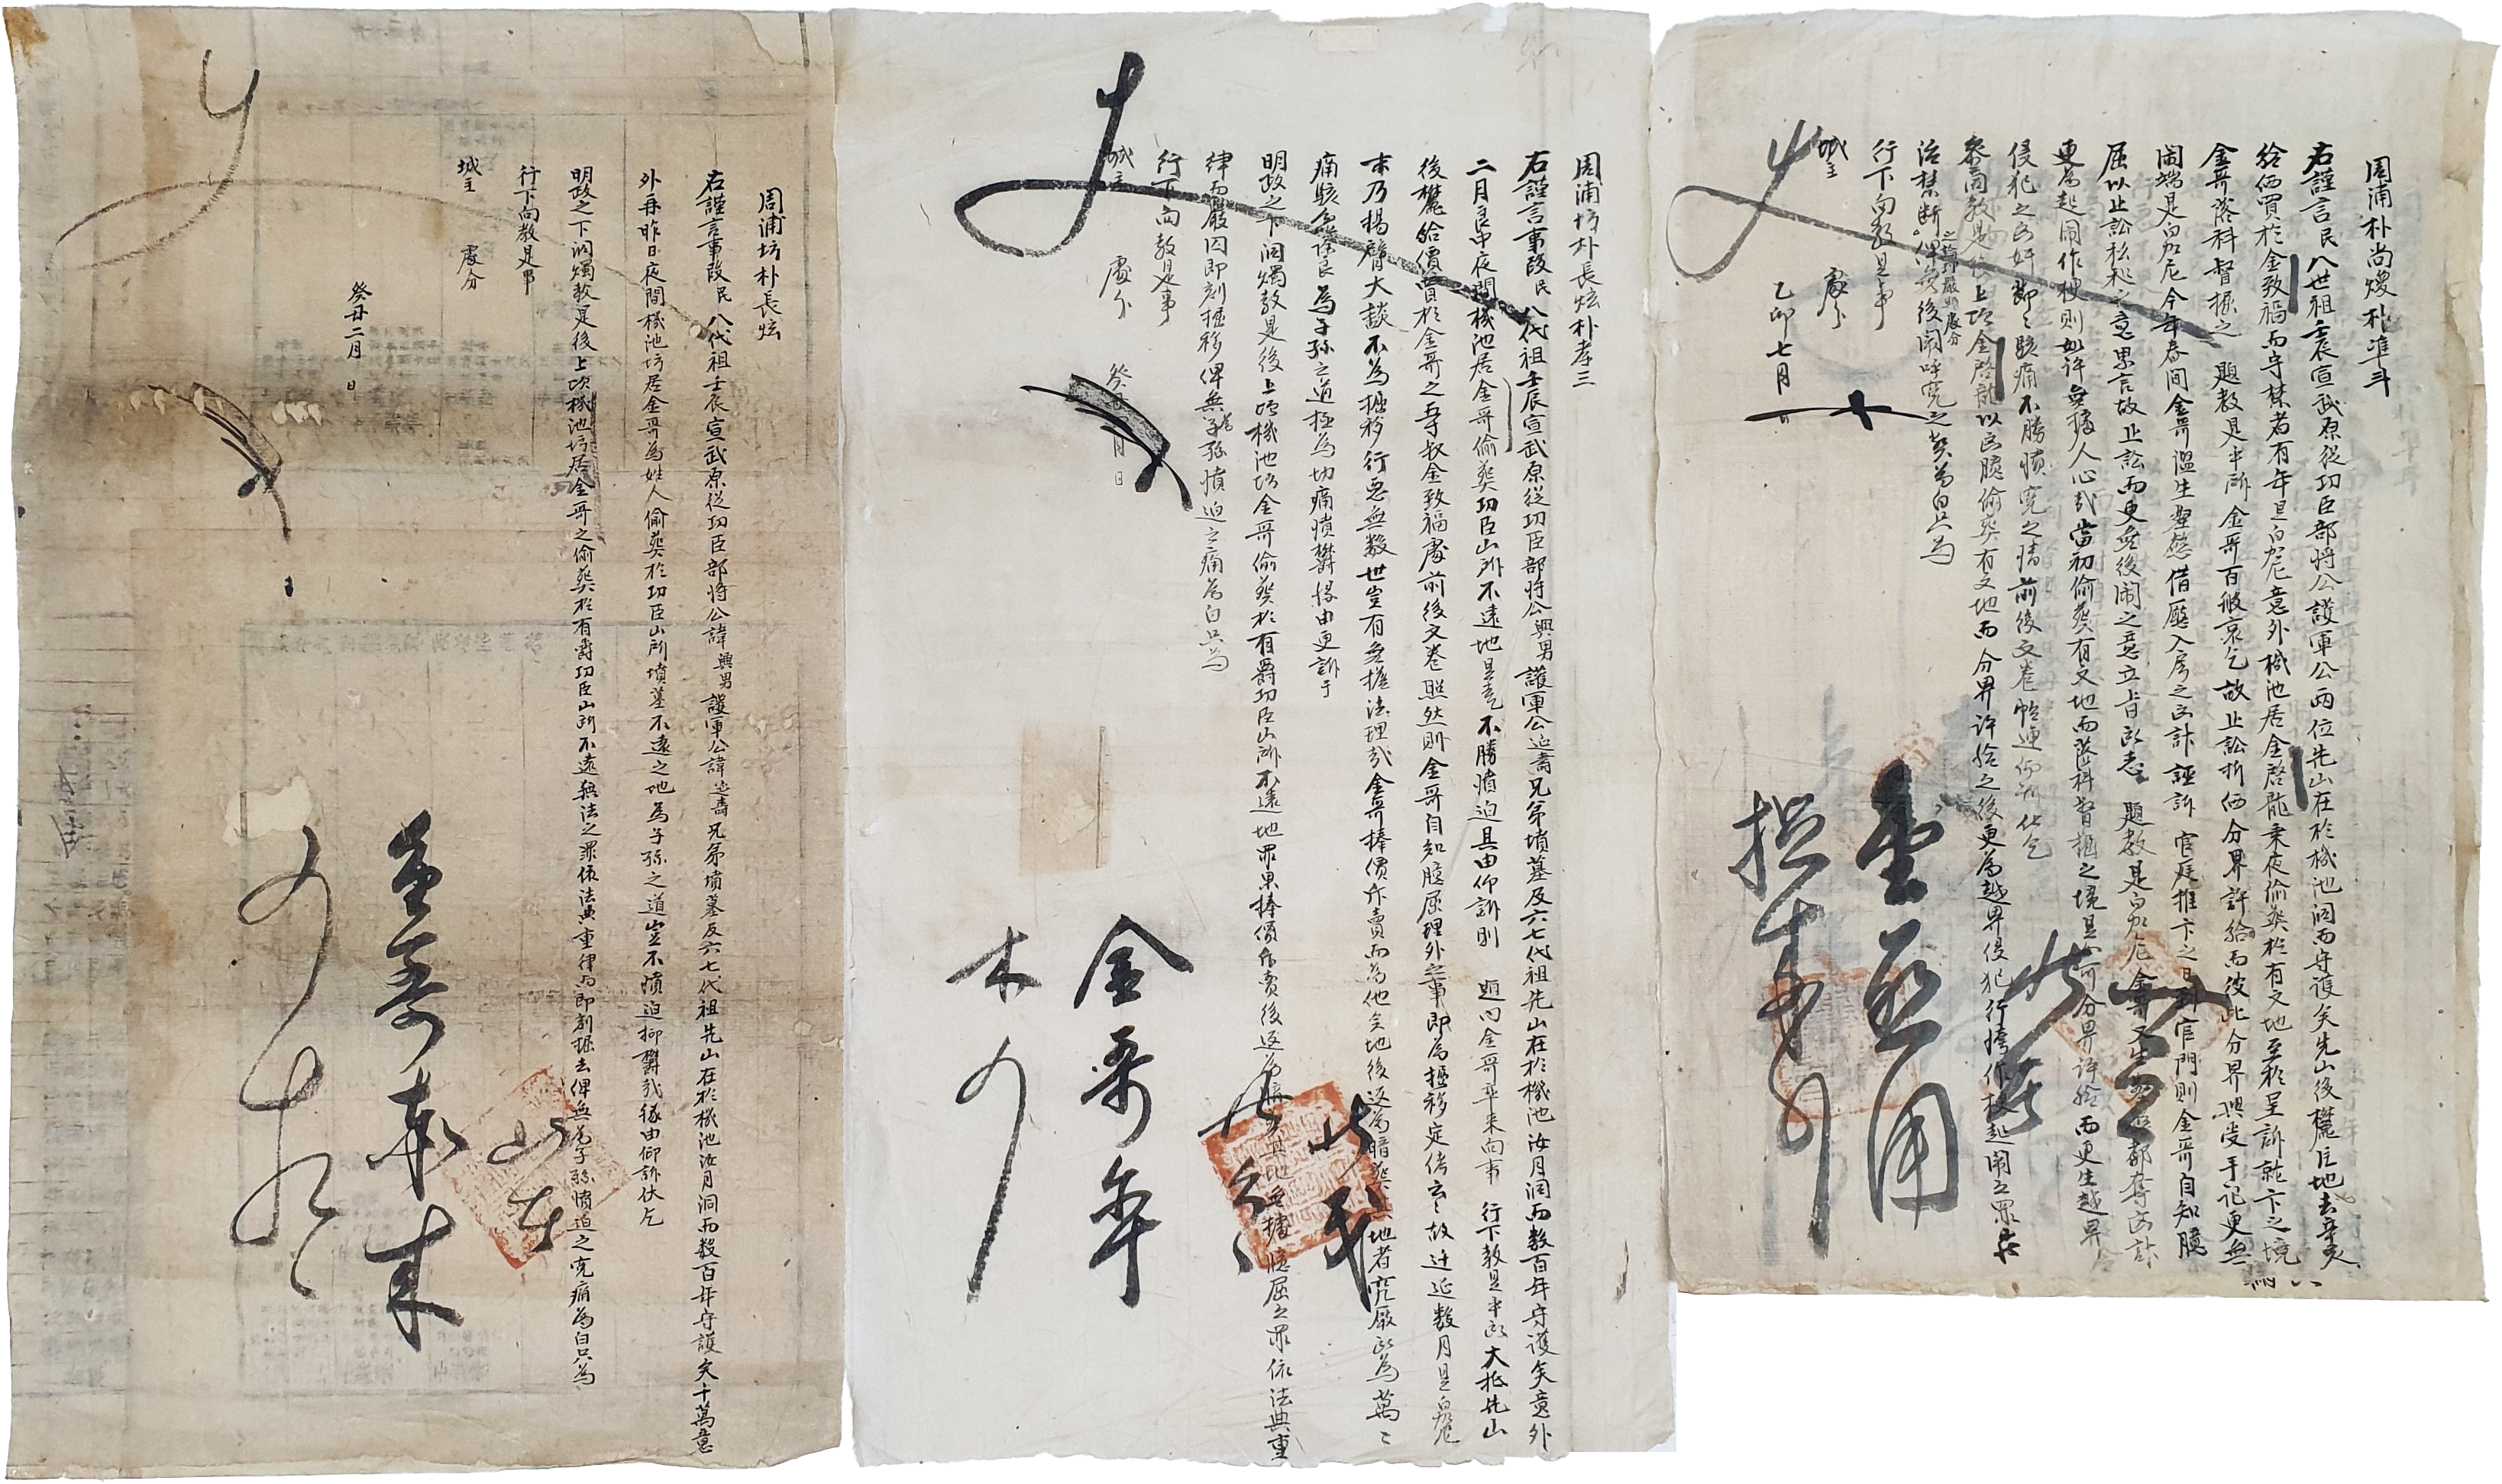 周浦朴尚燰朴準斗
右謹言民八世祖壬辰宣武原從功臣部將公護軍公兩位先山在於機池洞而守護矣先山後欌庄地去辛亥
給価買於金致福而守禁者有年是白如尼意外機池居金啓龍乘夜偷葬於有文地至於呈訴就卞之境
金哥落科督掘之 題教是乎所金哥百般哀乞故止訟折価分界許給而彼此分界興受手記更無
閙端是白如尼今年春間金哥溫生 借廳入房之凶計誣訴 官庭推卞之日 官門則金哥自知臆
屈以止訟私和之意累言故止訟而更無後閙之意立旨 題教是白如尼金哥又生 都奪凶計
更為起閙作梗則如許無據人心哉當初偷葬有文地而落科督掘之境是如可分界許給而更生越界
侵犯之凶奸節節駭痛不勝憤寃之情前後文卷帖連仰訴伏乞
參商教是後上項金啓龍以凶臆偷葬有文地而分界許給之後更為越界侵犯行悖作梗起閙之罪
治禁斷俾無後閙呼寃之獘為白只為
行下向教是事
城主 處分
乙卯七月 日
周浦坊朴長炫朴孝三
右謹言事段民八代祖壬辰宣武原從功臣部將公興男護軍公延壽兄弟墳墓及六七代祖先山在於機池汝月洞而數百年守護矣意外
二月良中夜間機池居金哥偷葬功臣山所不遠地是乎 不勝憤迫具由仰訴則 題內金哥率来向事 行下教是乎所大抵先山
後欌給價買於金哥之寺叔金致福處前後文卷照然則金哥自知臆屈理外之事即為掘移定侤云云故遷延數月是白如尼
末乃揚臂大談不為掘移行惡無數世豈有無據法理哉金哥捧價斥賣而為他矣地後返為暗葬 地者究厥所為萬萬
痛駭 為子孫之道極為切痛憤欝緣由更訴于
明政之下洞燭教是後上項機池坊金哥偷葬於有爵功臣山所不遠地罪果捧價斥賣後返為暗葬其地無據臆屈之罪依法典重
律而嚴囚即刻掘移俾無為子孫憤迫之痛為白只為
行下向教是事
城主 處分
癸丑 月 日
周浦坊朴長炫
右謹言事段民八代祖壬辰宣武原從功臣部將公諱興男護軍公諱延壽兄弟墳墓及六七代祖先山在於機池汝月洞而數百年守護矣千萬意
外再昨日夜間機池坊居金哥為姓人偷葬於功臣山所墳墓不遠之地為子孫之道豈不憤迫抑欝哉緣由仰訴伏乞
明政之下洞燭教是後上項機池坊居金哥之偷葬於有爵功臣山所不遠無法之罪依法典重律而即刻掘去俾無為子孫憤迫之寃痛為白只為
行下向教是事
城主 處分
癸丑二月 日
金哥率来